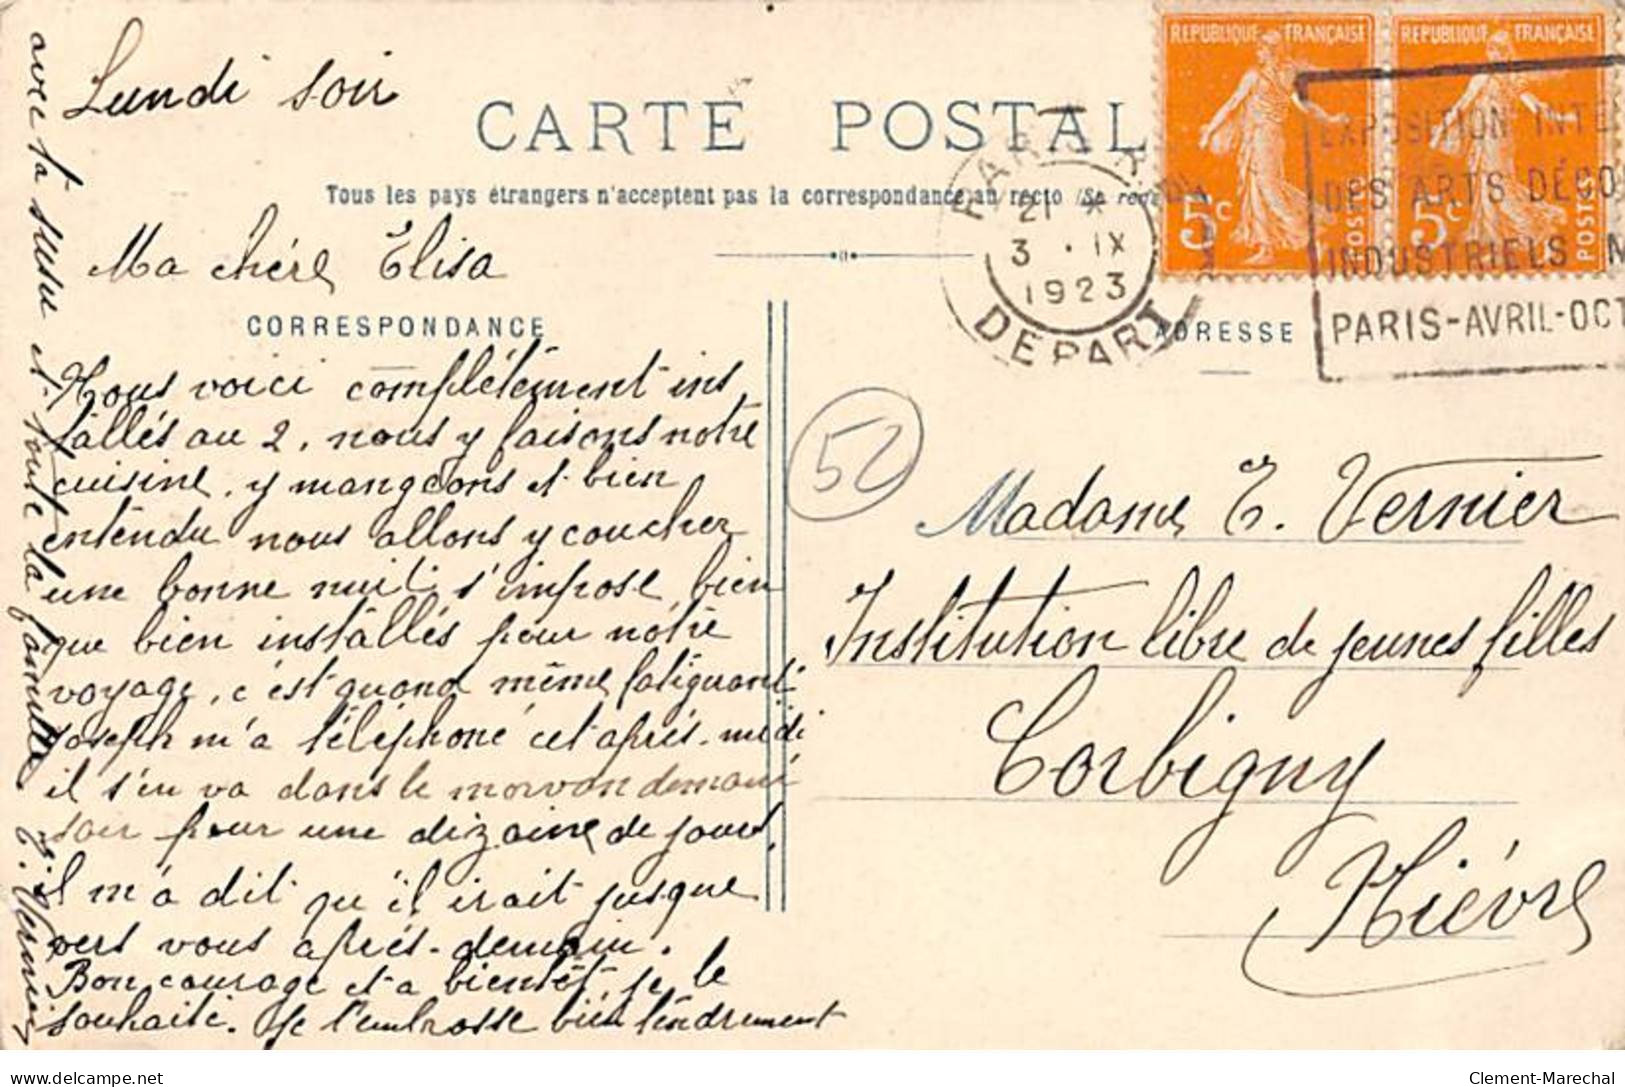 Lundi soir
CARTE POSTAL
Tous les pays étrangers n'acceptent pas la correspondance au recto (Se
Ma chére Elisa
CORRESPONDANCE
Nous voici complétement ins
tallés au 2, nous y faisons notre
cuisine, y mangeons et bien
entendu nous allons y coucher
une bonne nuit s'impose, bien
que bien installés pour notre
voyage, c'est quand même fatiguant
Joseph m'a téléphoné cet aprés-midi
il s'en va dans le morvan demain
soir pour une dizaine de jours.
il m'a dit qu'il irait jusque
vers vous aprés-demain.
Bon courage et a bientôt, je le
souhaite. Je t'embrasse bien tendrement
avec ta sœur et toute la famille E. Vernier
REPUBLIQUE FRANÇAISE
5c
POSTES
REPUBLIQUE FRANÇAISE
5c
POSTES
PARIS
21 *
3 . IX
1923
DEPART
EXPOSITION INTE
DES ARTS DÉCO
INDUSTRIELS M
PARIS-AVRIL-OCT
ADRESSE
52
Madame E. Vernier
Institution libre de jeunes filles
Corbigny
Niévre
delcampe.net
Clement-Marechal